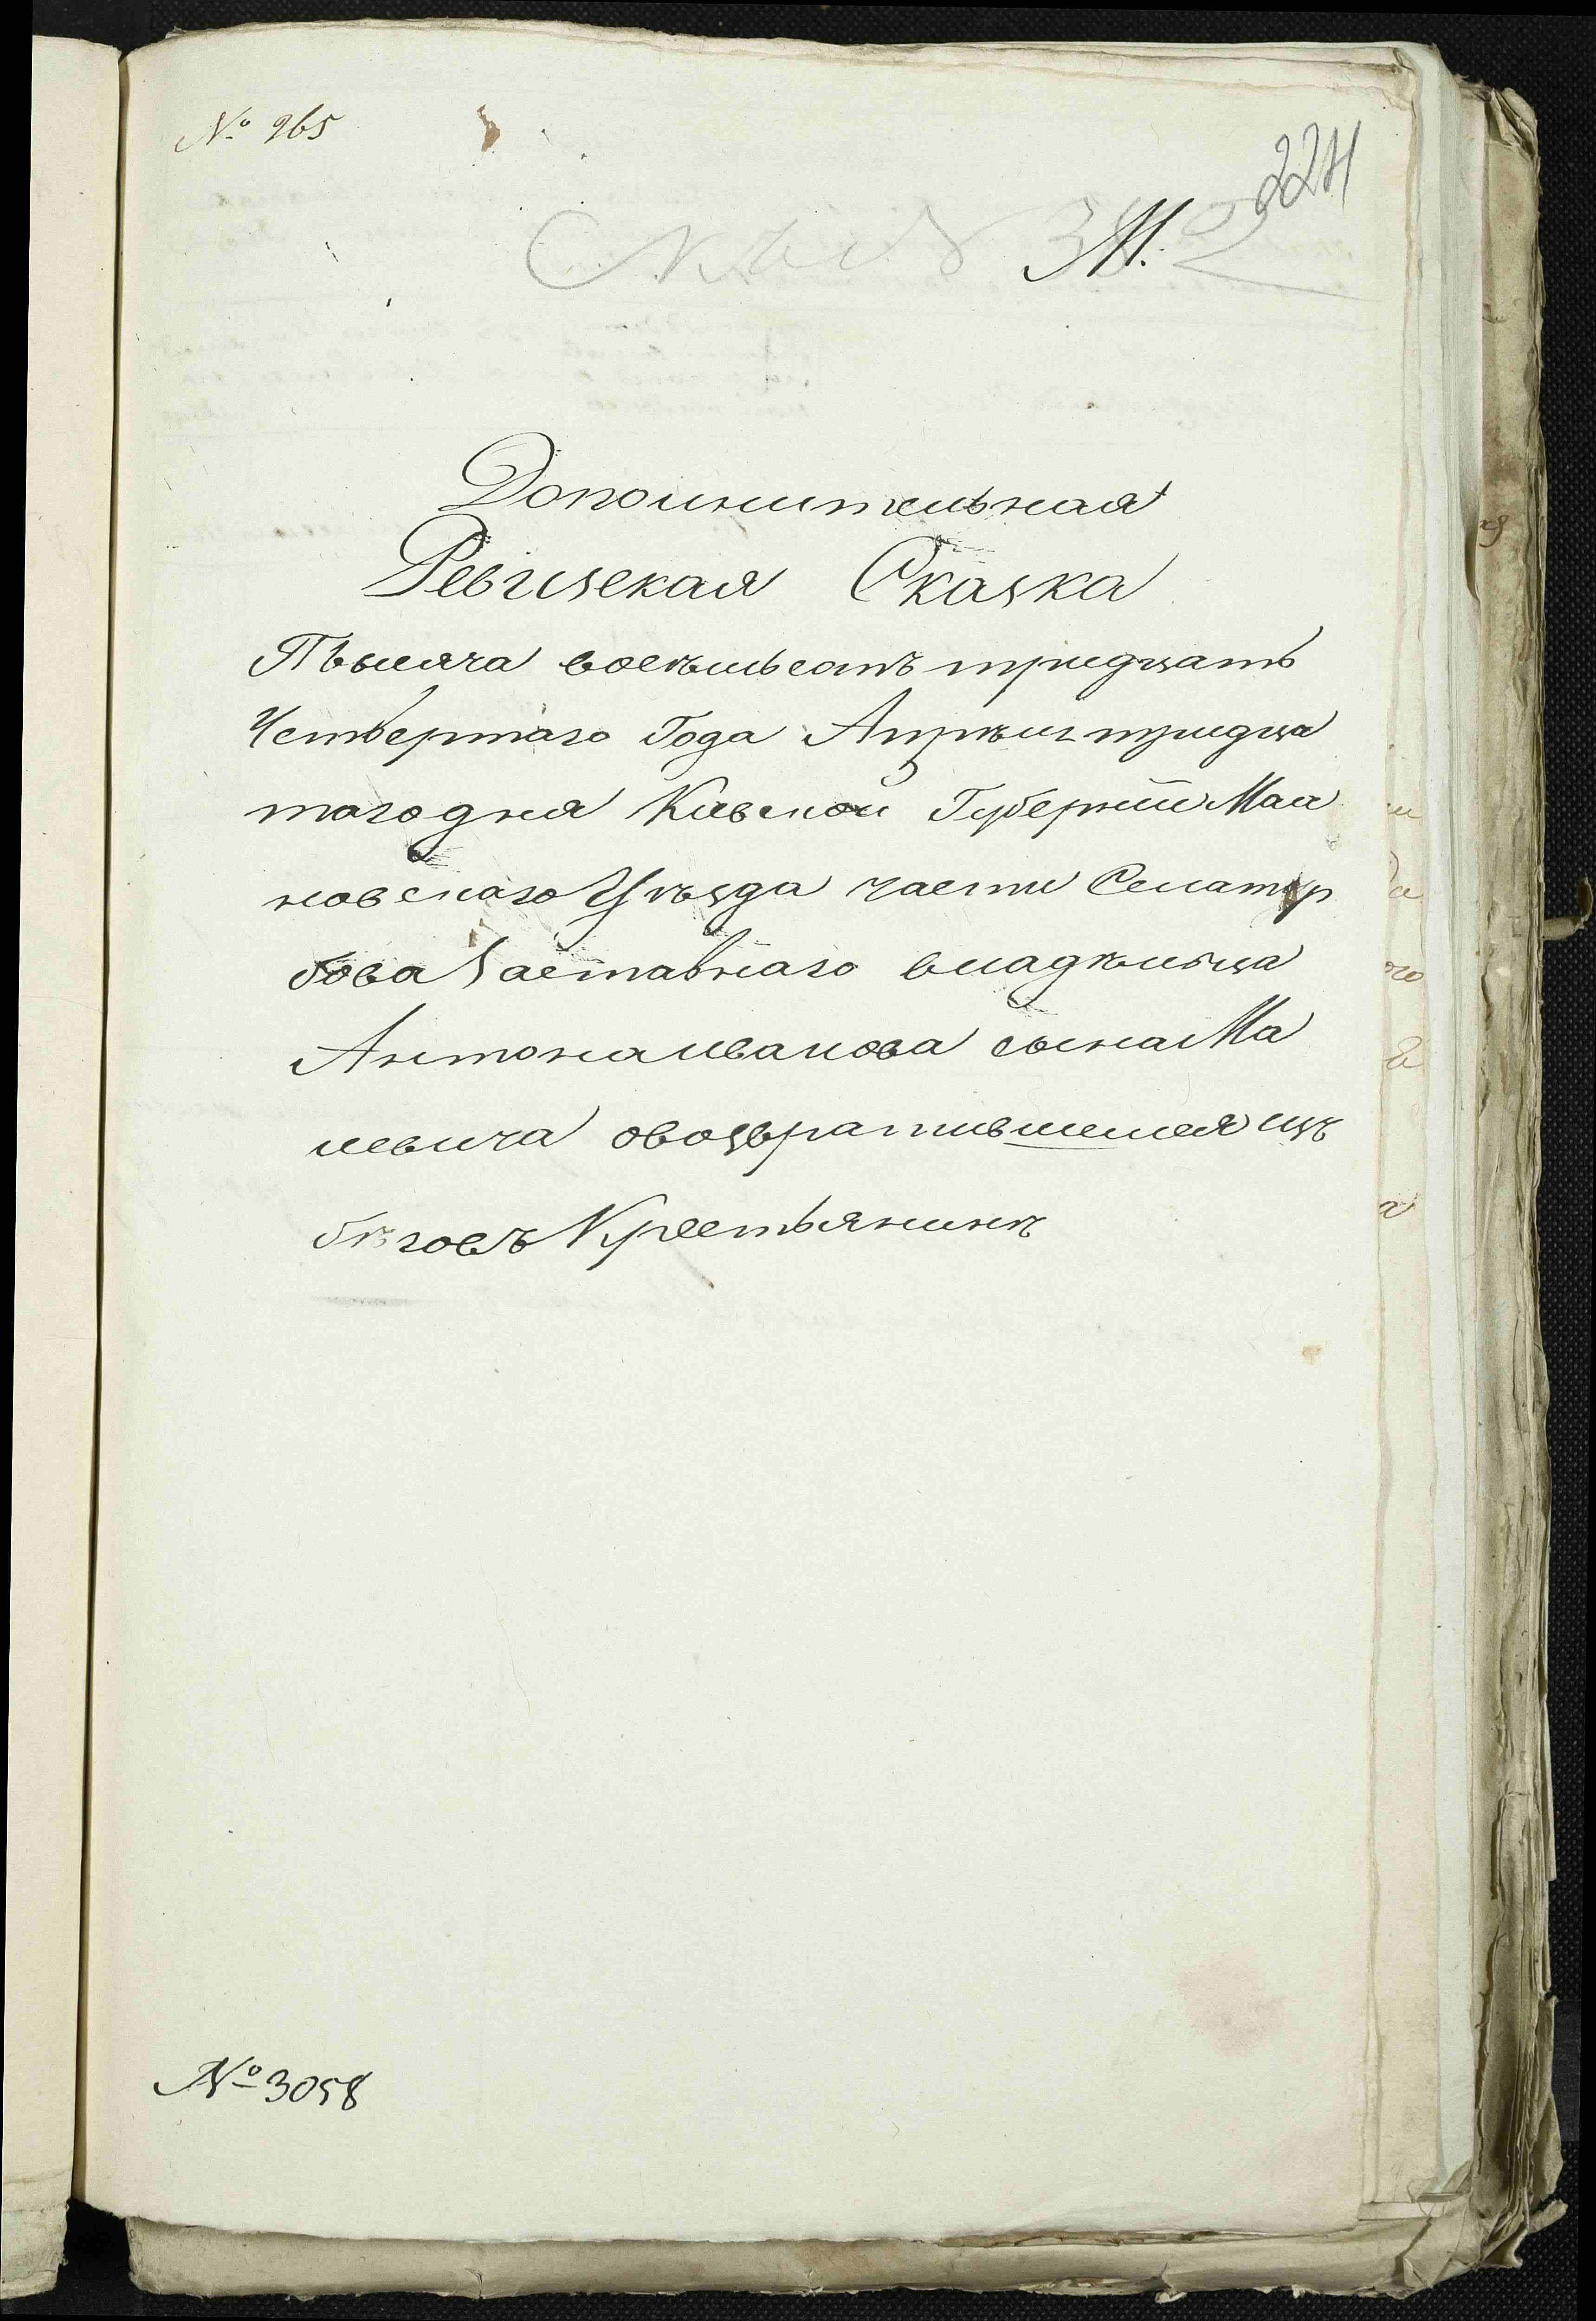 № 265
224
М.
Дополнительная
Ревизская Сказка
Тысяча восемьсотъ тридцать
Четвертаго Года Апрѣля тридца
таго дня Кіевской Губерніи Мах
новскаго Уѣзда части Села
Заставнаго владѣльца
Антона Иванова сына Ма
левича о возвратившемся изъ
бѣговъ Крестьянинѣ
№ 3058